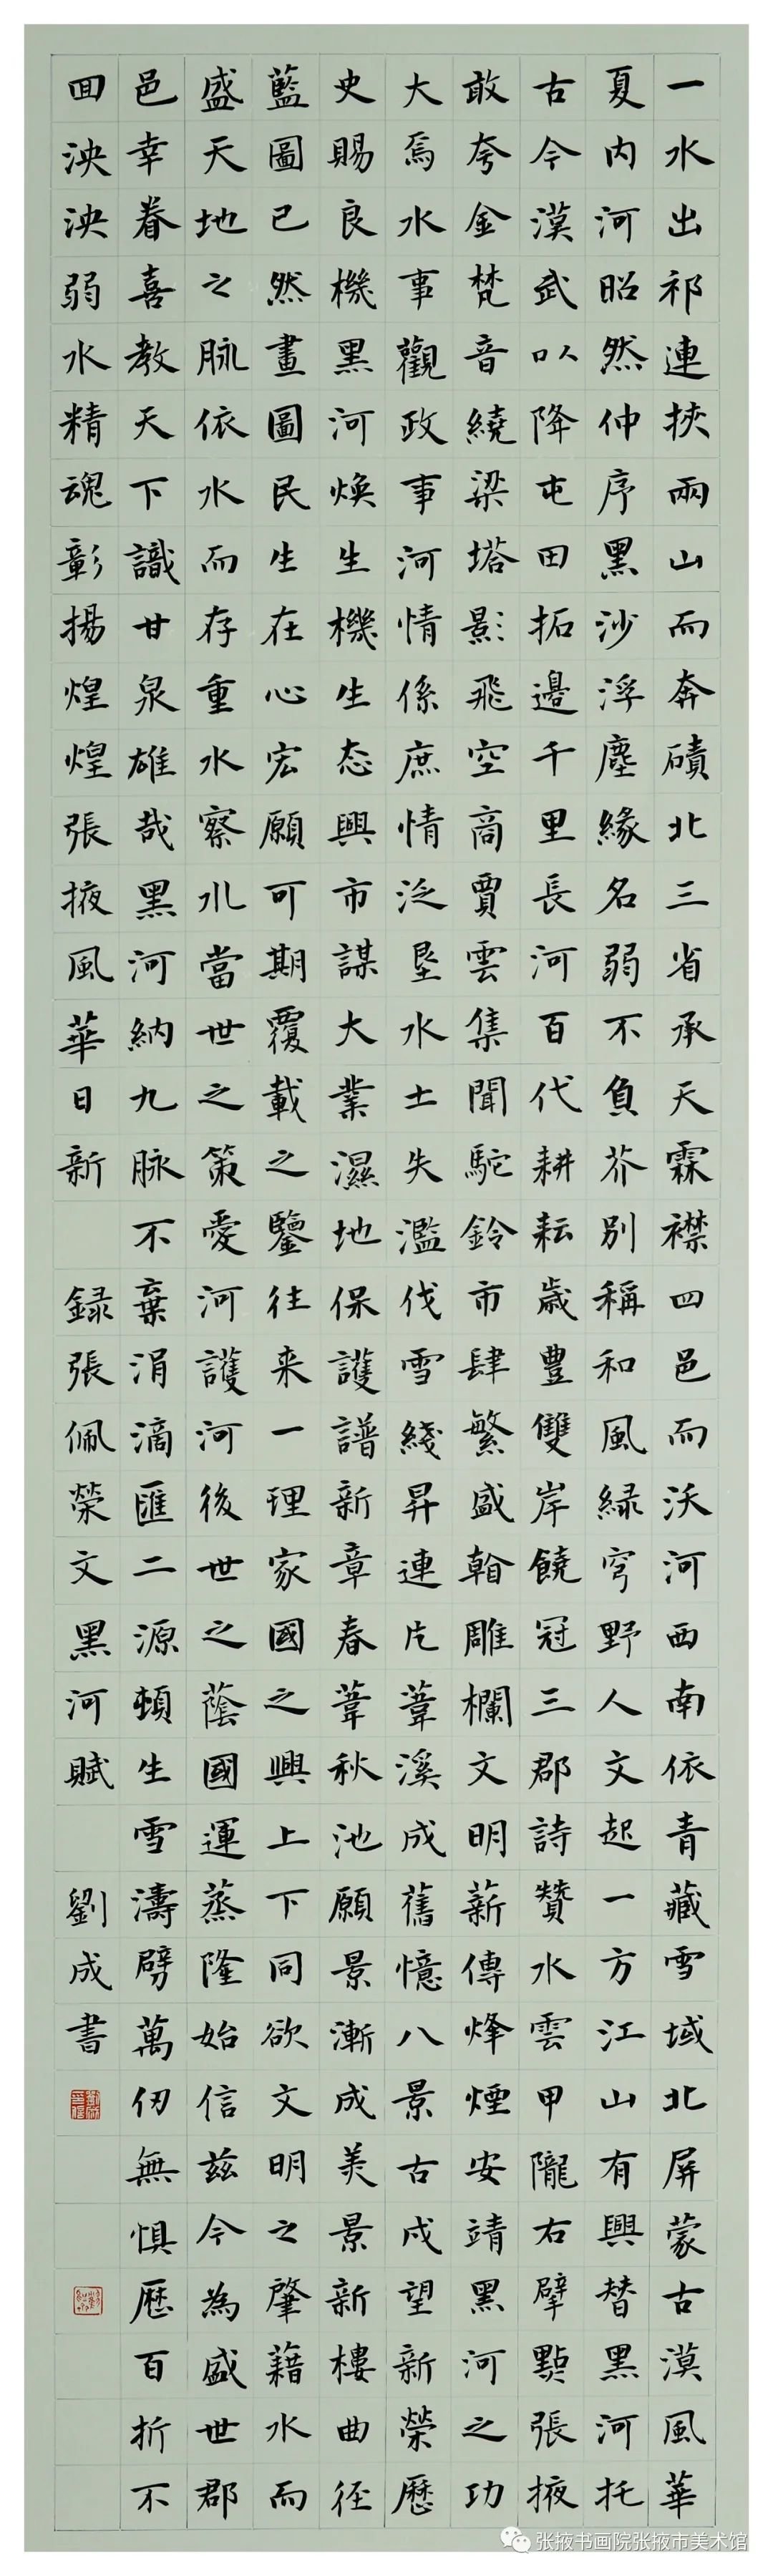 一水出祁連挾兩山而奔磧北三省承天霖襟四邑而沃河西南依青藏雪域北屏蒙古漠風華
夏內河昭然仲序黑沙浮塵緣名弱不負芥別稱和風緑穹野人文起一方江山有興替黑河托
古今漠武以降屯田拓邊千里長河百代耕耘歲豐雙岸饒冠三郡詩贊水雲甲隴右擘點張掖
敢夸金梵音繞梁塔影飛空商賈雲集聞駝鈴市肆繁盛翰雕欄文明薪傳烽煙安靖黑河之功
大焉水事觀政事河情係庶情泛墾水土失濫伐雪綫昇連片葦溪成舊憶八景古成望新榮歷
史賜良機黑河焕生機生态興市謀大業濕地保護譜新章春葦秋池願景漸成美景新樓曲徑
藍圖已然畫圖民生在心宏願可期覆載之鑒往来一理家國之興上下同欲文明之肇藉水而
盛天地之脉依水而存重水察水當世之策愛河護河後世之蔭國運蒸隆始信兹今為盛世郡
邑幸眷喜教天下識甘泉雄哉黑河納九脉不棄涓滴匯二源頓生雪濤劈萬仞無惧歷百折不
回泱泱弱水精魂彰揚煌煌張掖風華日新 録張佩榮文黑河賦 劉成書
张掖书画院张掖市美术馆